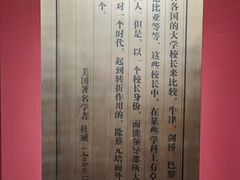 各国的大学校长来比较，牛津、剑桥、巴黎
比亚等等，这些校长中，在某些学科上有卓
人，但是，以一个校长身份，而能领导那所大
对一个时代，起到转折作用的，除蔡元培而外
个。
美国著名学者 杜威